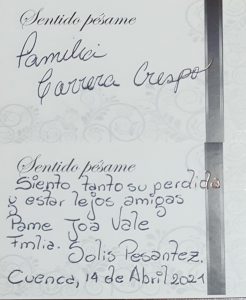 Sentido pésame
Familia
Carrera Crespo
Sentido pésame
Siento, tanto su perdida
y estar lejos amigas
Pame Joa Vale
Fmlia. Solis Pesantez.
Cuenca, 14 de Abril 2021